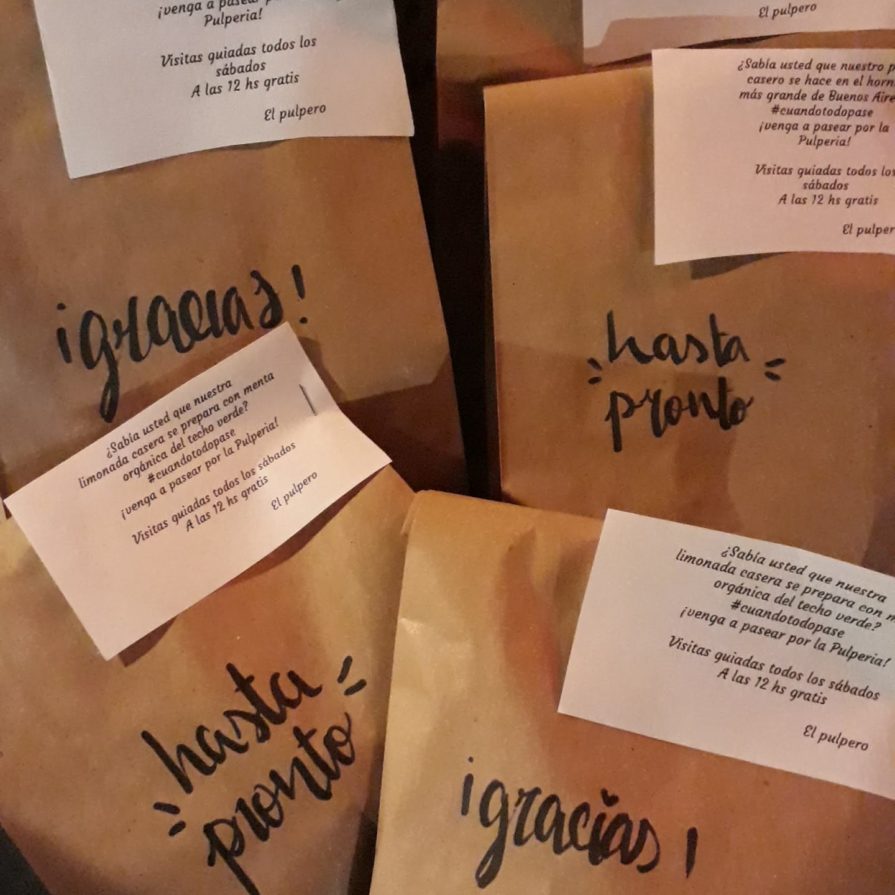 ¡venga a pasear p
Pulperia!
Visitas guiadas todos los
sábados
A las 12 hs gratis
El pulpero
¡gracias!
El pulpero
¿Sabía usted que nuestro p
casero se hace en el horn
más grande de Buenos Aire
#cuandotodopase
¡venga a pasear por la
Pulperia!
Visitas guiadas todos los
sábados
A las 12 hs gratis
El pulper
hasta
pronto
¿Sabía usted que nuestra
limonada casera se prepara con menta
orgánica del techo verde?
#cuandotodopase
¡venga a pasear por la Pulperia!
Visitas guiadas todos los sábados
A las 12 hs gratis
El pulpero
hasta
pronto
¿Sabía usted que nuestra
limonada casera se prepara con m
orgánica del techo verde?
#cuandotodopase
¡venga a pasear por la Pulperia!
Visitas guiadas todos los sábados
A las 12 hs gratis
El pulpero
¡gracias!